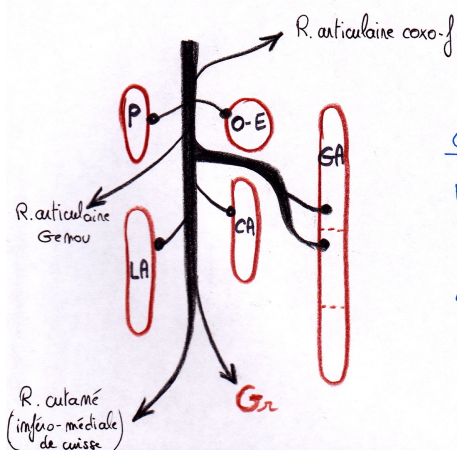 R. articulaire coxo-f
P
O-E
GA
R. articulaire
Genou
CA
LA
Gr
R. cutané
(inféro-médiale
de cuisse)